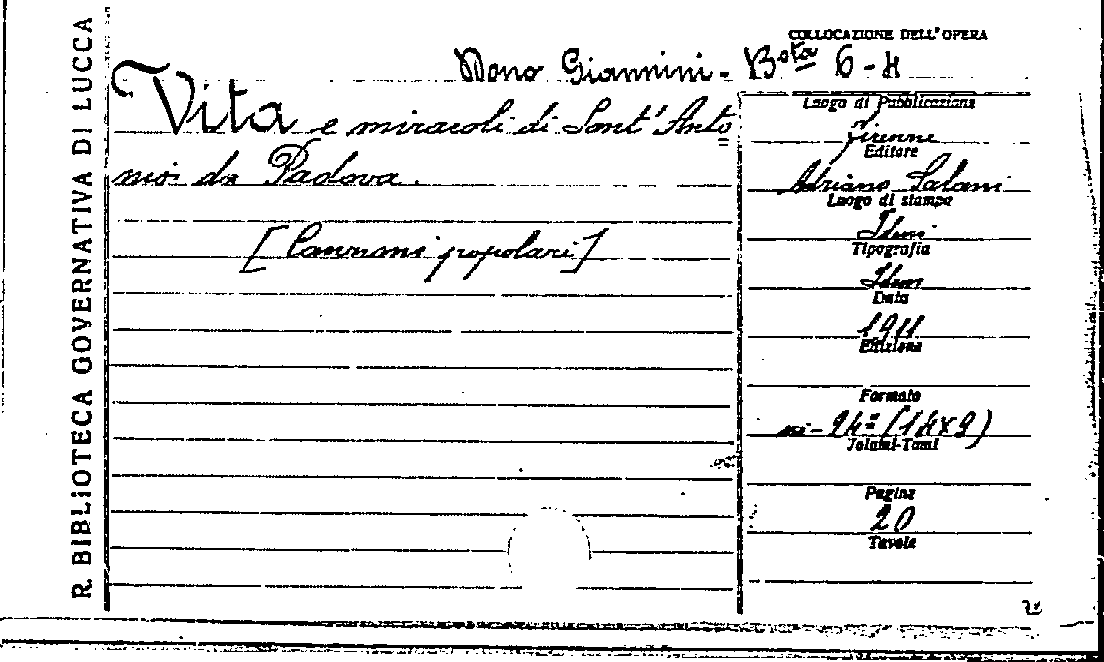 R. BIBLIOTECA GOVERNATIVA DI LUCCA
COLLOCAZIONE DELL'OPERA
Dono Giannini - Bsta 6-4
Vita e miracoli di Sant'Anto
nio da Padova.
[Canzoni popolari]
Luogo di Pubblicazione
Firenze
Editore
Adriano Salani
Luogo di stampa
Idem
Tipografia
Idem
Data
1911
Edizione
Formato
in-24º (14x9)
Volumi-Tomi
Pagine
20
Tavole